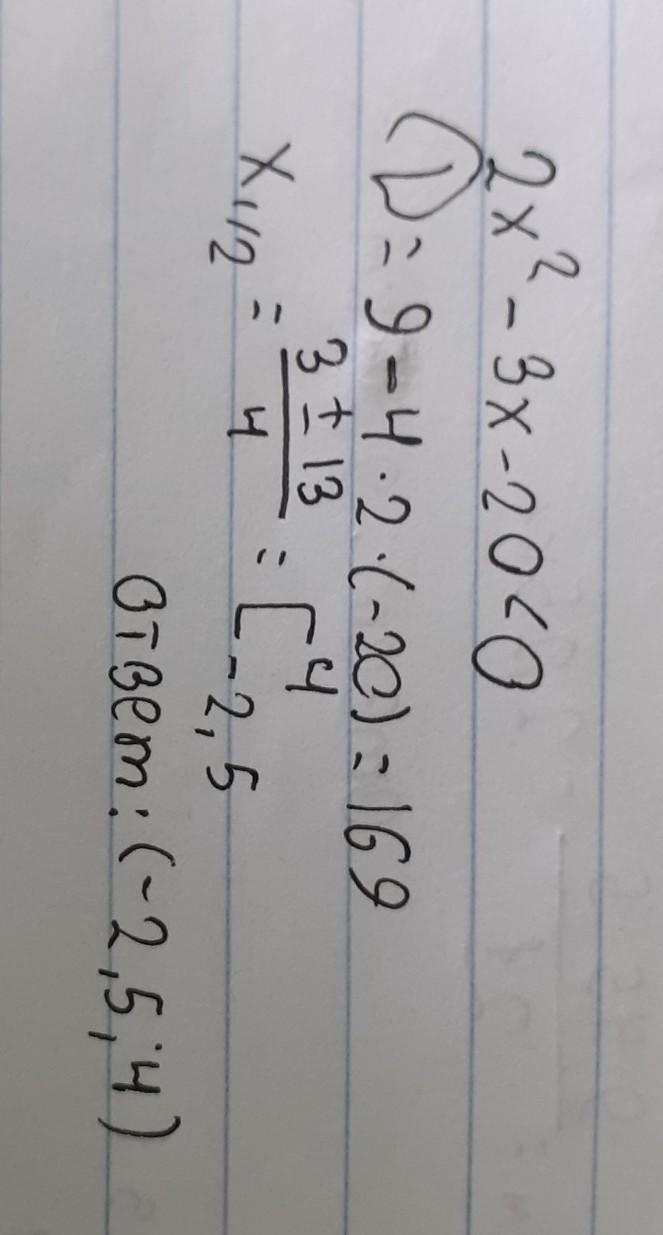 2x² - 3x - 20 < 0
D = 9 - 4 · 2 · (-20) = 169
x₁,₂ = (3 ± 13)/4 = [4 -2,5
Ответ: (-2,5; 4)